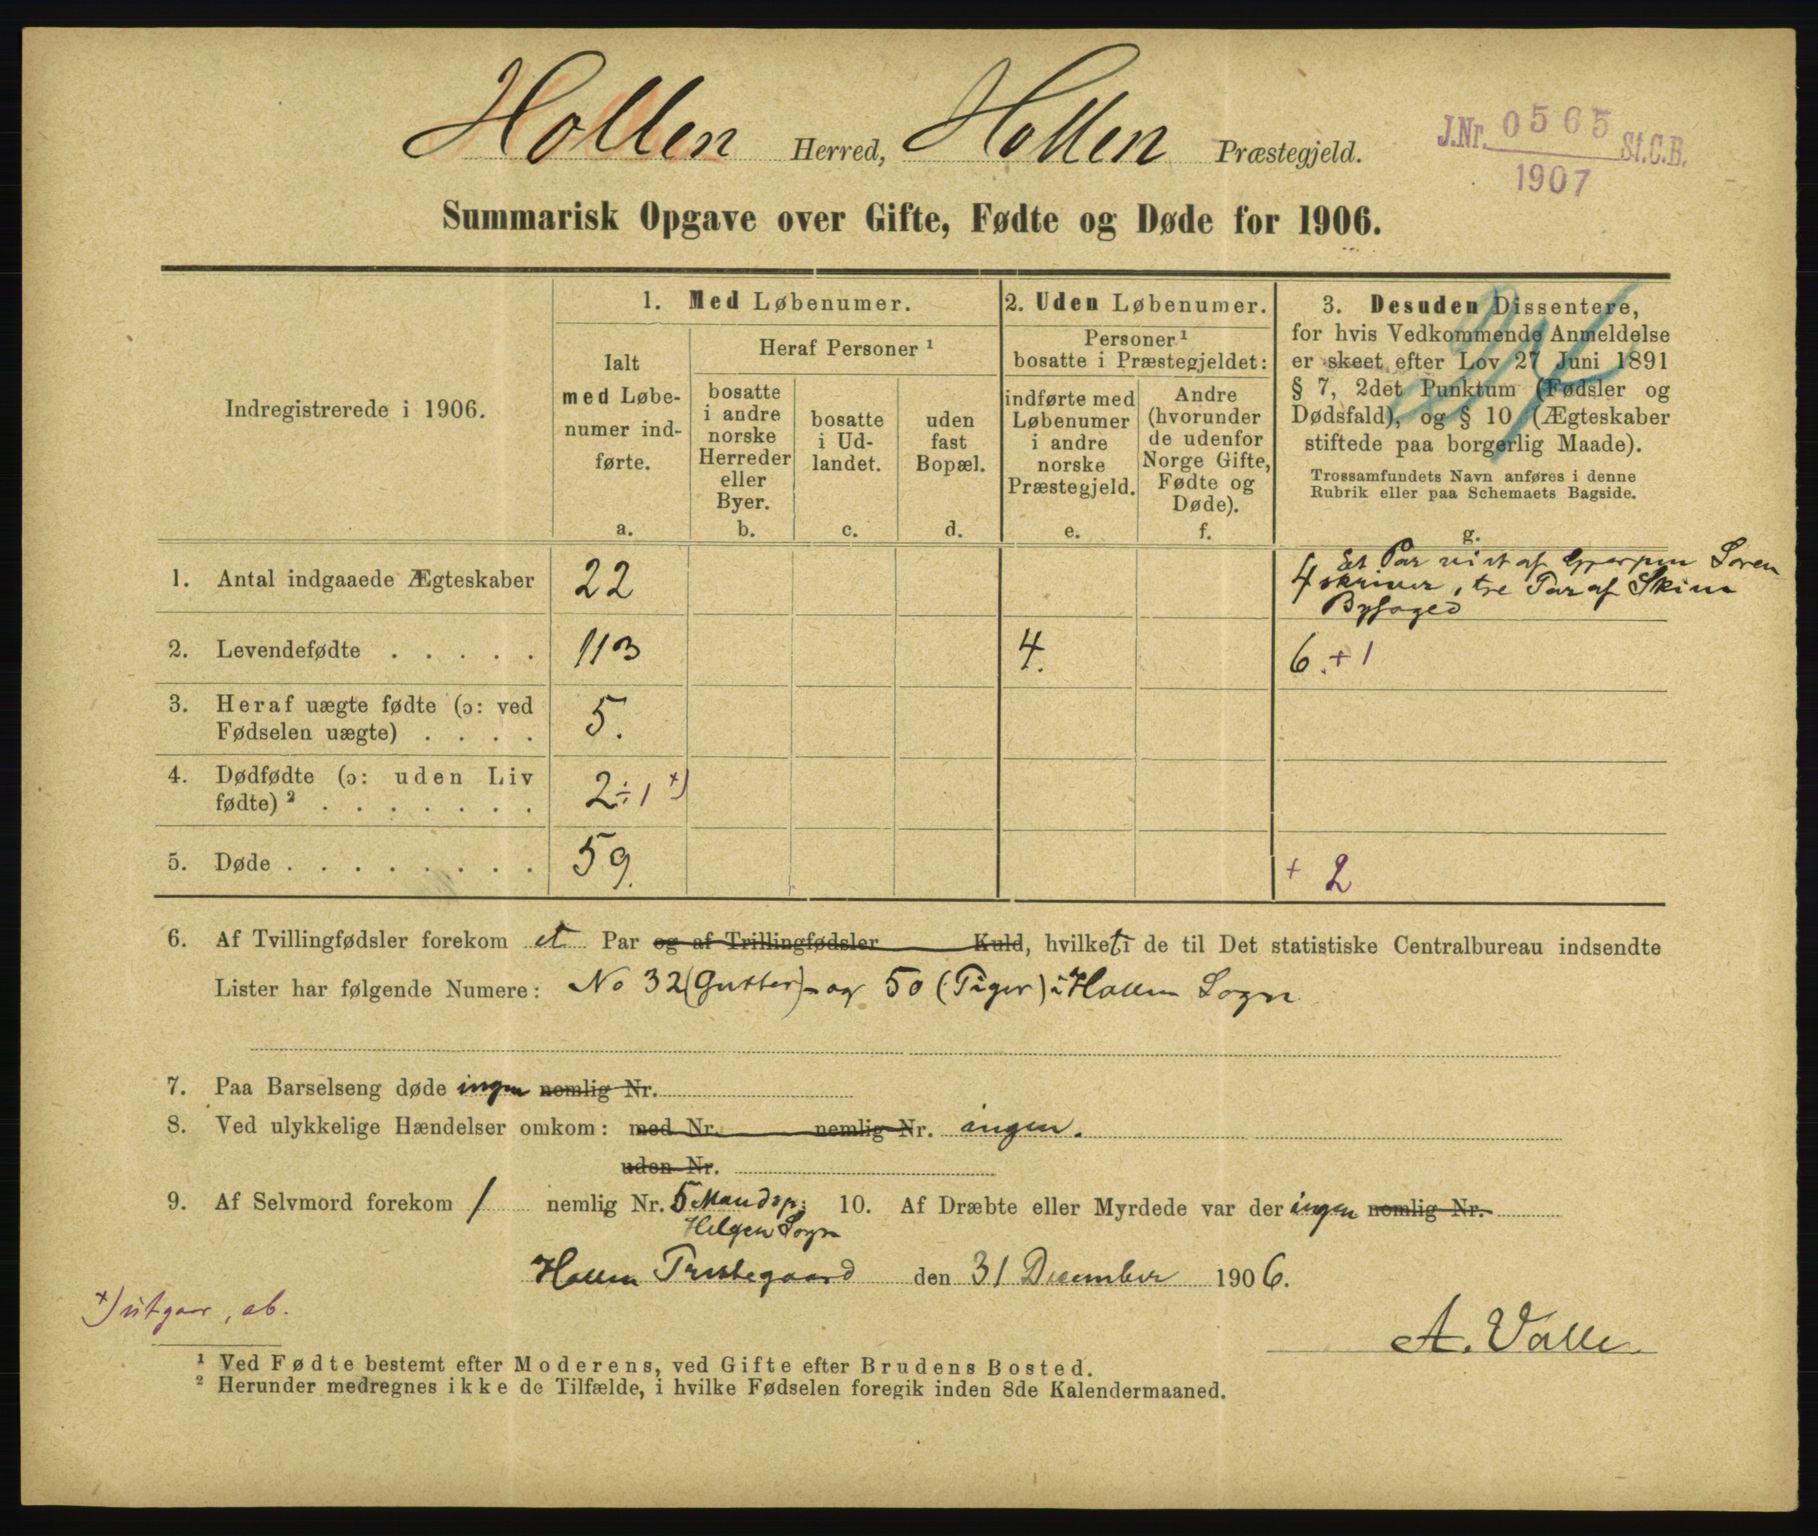 Hollen Herred, Hollen Præstegjeld.
J.Nr. 0565 St.C.B.
1907
Summarisk Opgave over Gifte, Fødte og Døde for 1906.
Indregistrerede i 1906.
1. Med Løbenumer.
Ialt
med Løbe-
numer ind-
førte.
a.
Heraf Personer ¹
bosatte
i andre
norske
Herreder
eller
Byer.
b.
bosatte
i Ud-
landet.
c.
uden
fast
Bopæl.
d.
2. Uden Løbenumer.
Personer ¹
bosatte i Præstegjeldet:
indførte med
Løbenumer
i andre
norske
Præstegjeld.
e.
Andre
(hvorunder
de udenfor
Norge Gifte,
Fødte og
Døde).
f.
3. Desuden Dissentere,
for hvis Vedkommende Anmeldelse
er skeet efter Lov 27 Juni 1891
§ 7, 2det Punktum (Fødsler og
Dødsfald), og § 10 (Ægteskaber
stiftede paa borgerlig Maade).
Trossamfundets Navn anføres i denne
Rubrik eller paa Schemaets Bagside.
g.
1. Antal indgaaede Ægteskaber 22
4 Et Par viet af Gjerpen Soren
skriver, tre Par af Skien
Byfoged
2. Levendefødte . . . . . 113 4. 6. + 1
3. Heraf uægte fødte (ɔ: ved
Fødselen uægte) . . . . 5.
4. Dødfødte (ɔ: uden Liv
fødte) ² . . . . . . . 2 ÷ 1 ˣ)
5. Døde . . . . . . . . 59. + 2
6. Af Tvillingfødsler forekom et Par og af Trillingfødsler Kuld, hvilketi de til Det statistiske Centralbureau indsendte
Lister har følgende Numere: No 32 (Gutter) - og 50 (Piger) i Hollen Sogn
7. Paa Barselseng døde ingen nemlig Nr.
8. Ved ulykkelige Hændelser omkom: med Nr. nemlig Nr. ingen.
uden Nr.
9. Af Selvmord forekom 1 nemlig Nr. 5 Mandsp: 10. Af Dræbte eller Myrdede var der ingen nemlig Nr.
Helgen Sogn
Hollen Prestegaard den 31 December 1906.
ˣ) utgaar, ab.
A. Valle.
¹ Ved Fødte bestemt efter Moderens, ved Gifte efter Brudens Bosted.
² Herunder medregnes ikke de Tilfælde, i hvilke Fødselen foregik inden 8de Kalendermaaned.